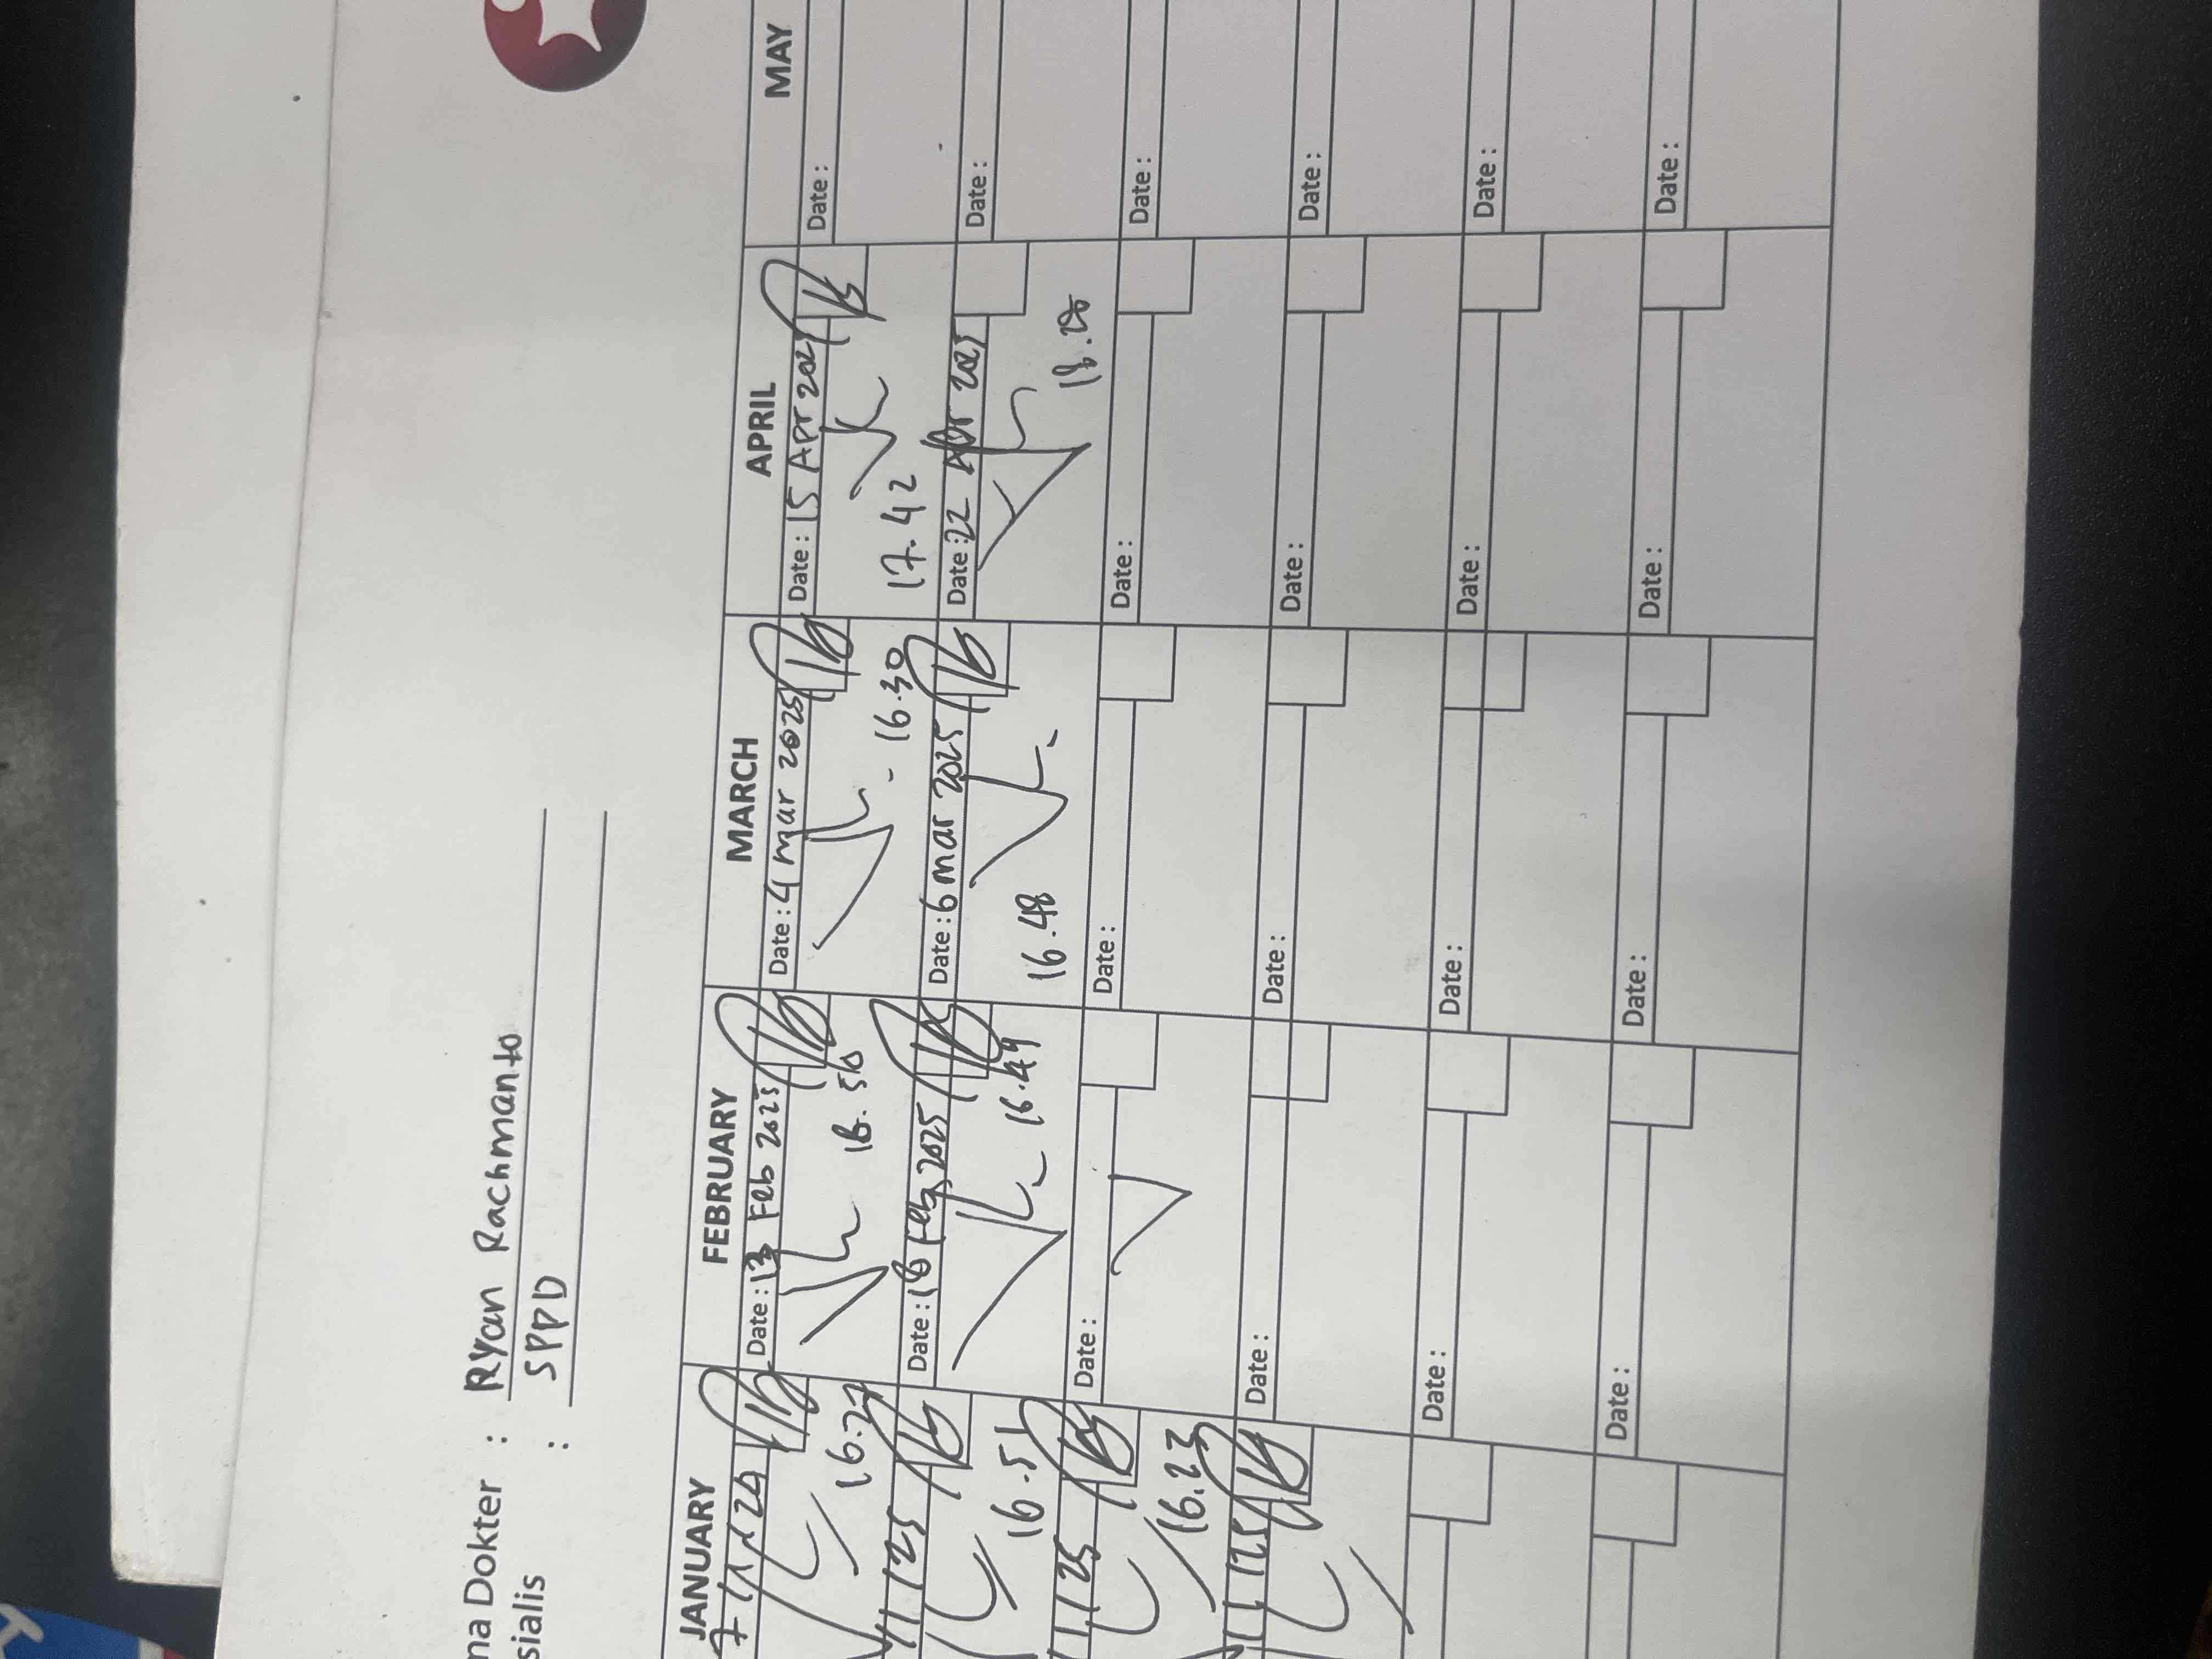 na Dokter : Ryan Rachmanto
sialis : SPPD
JANUARY FEBRUARY MARCH APRIL MAY
Date : 13 Feb 2025 Date : 4 mar 2025 Date : 15 Apr 202 Date :
16.27 16.30 17.42
/1/25 Date : 18 Feb 2025 Date : 6 mar 2025 Date : 22 Apr 202 Date :
16.51 16.49 16.48
1/25 Date : Date : Date : Date :
16.23
/25 Date : Date : Date : Date :
Date : Date : Date : Date :
Date : Date : Date : Date :